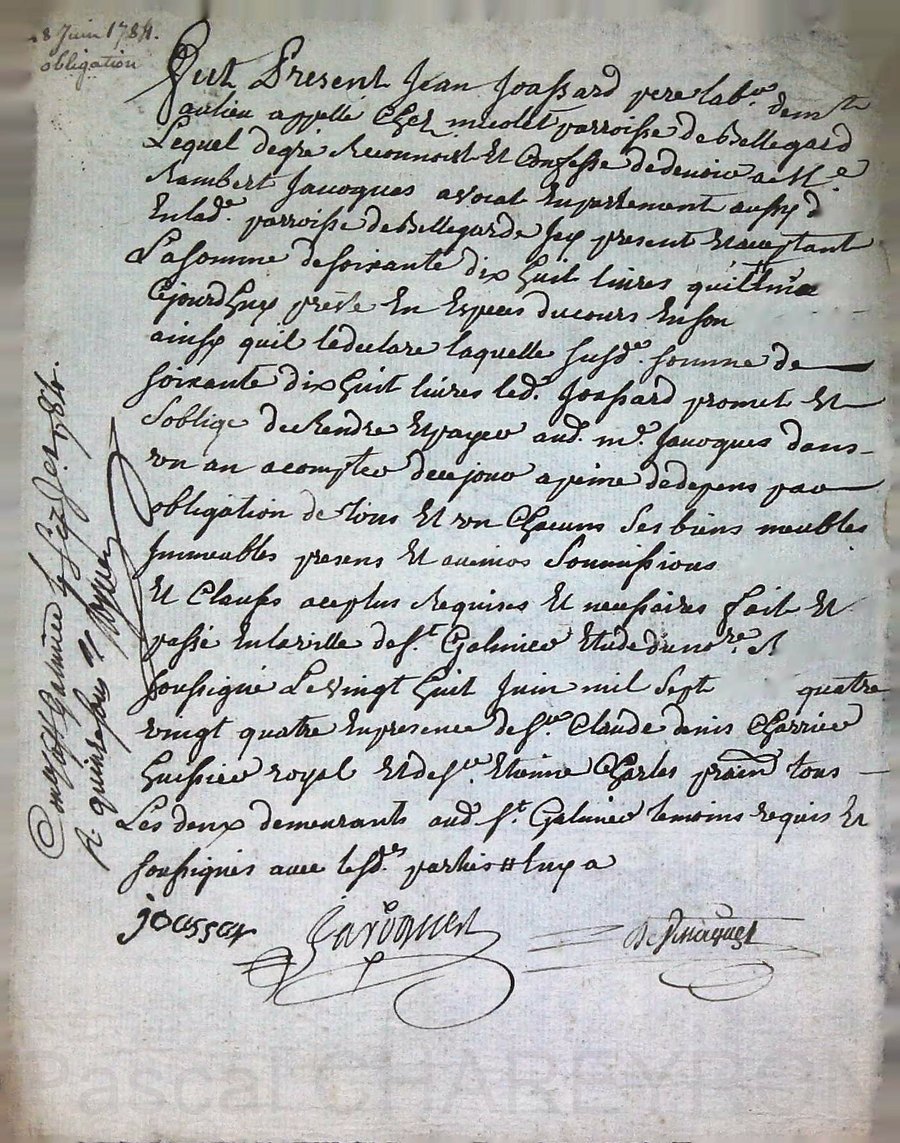 8 Juin 1784.
obligation
Fut Present Jean Joassard pere lab.r dem.t
au lieu appellé Chez nicolet parroisse de Bellegard
Lequel de gré Reconnoist Et Confesse de devoir a M.e
Rambert Jacoques avocat En parlement aussy d
En lad.e parroisse de Bellegarde Icy present Et acceptant
La somme de soixante dix huit livres quil
Cejourdhuy prété En Espèces du cours En son
ainsy quil le declare laquelle susd.e somme de
soixante dix huit livres led. Joassard promet Et
soblige de Rendre Et payer aud. m.e Jacoques dans
un an a compter de ce jour a peine de depens par
obligation de tous Et un Chacuns ses biens meubles
Immeubles presens Et avenirs Soumissions
Et Clauses a ce plus Requises Et necessaires fait Et
passé En la ville de S.t Galmier Etude du no.re R.
soussigné Le vingt huit Juin mil sept quatre
vingt quatre En presence de S.r Claude denis Charrier
huissier royal Et de S.r Etienne Charles tous
Les deux demeurants aud. S.t Galmier temoins requis Et
soussignés avec lesd.es parties
joassar Jacoques
Con.lé a St Galmier 1784.
R. quinze sous
Pascal CHAREYRON